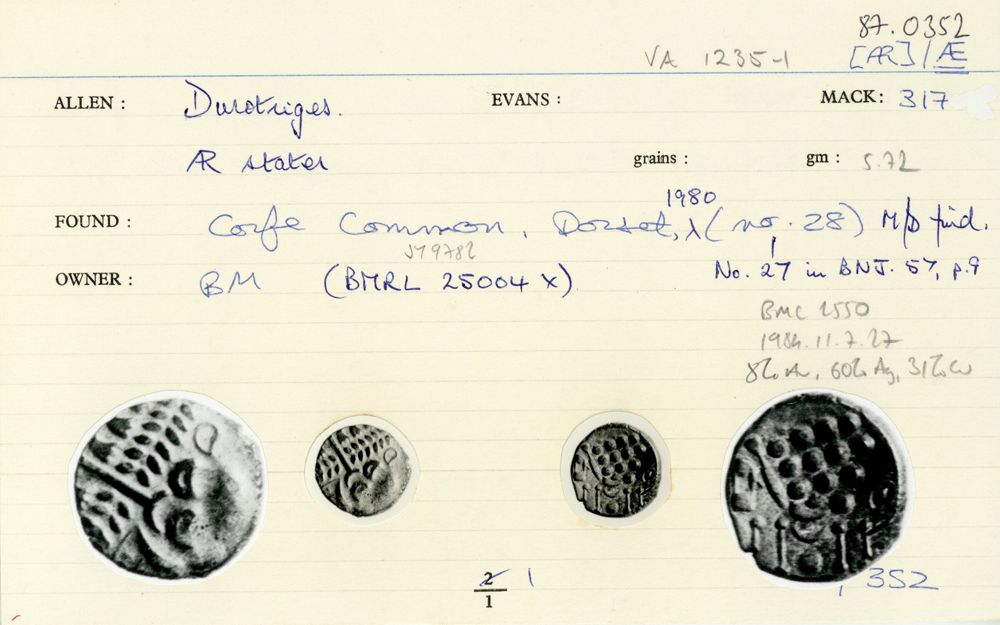 87.0352
VA 1235-1 [AR]/Æ
ALLEN : Durotriges. EVANS : MACK: 317
AR stater grains : gm : 5.72
1980
FOUND : Corfe Common, Dorset, λ (no. 28) M/D find.
SY9782
No. 27 in BNJ. 57, p.9
OWNER : BM (BMRL 25004 X)
BMC 2550
1984.11.7.27
8% Au, 60% Ag, 31% Cu
2 1
1
, 352